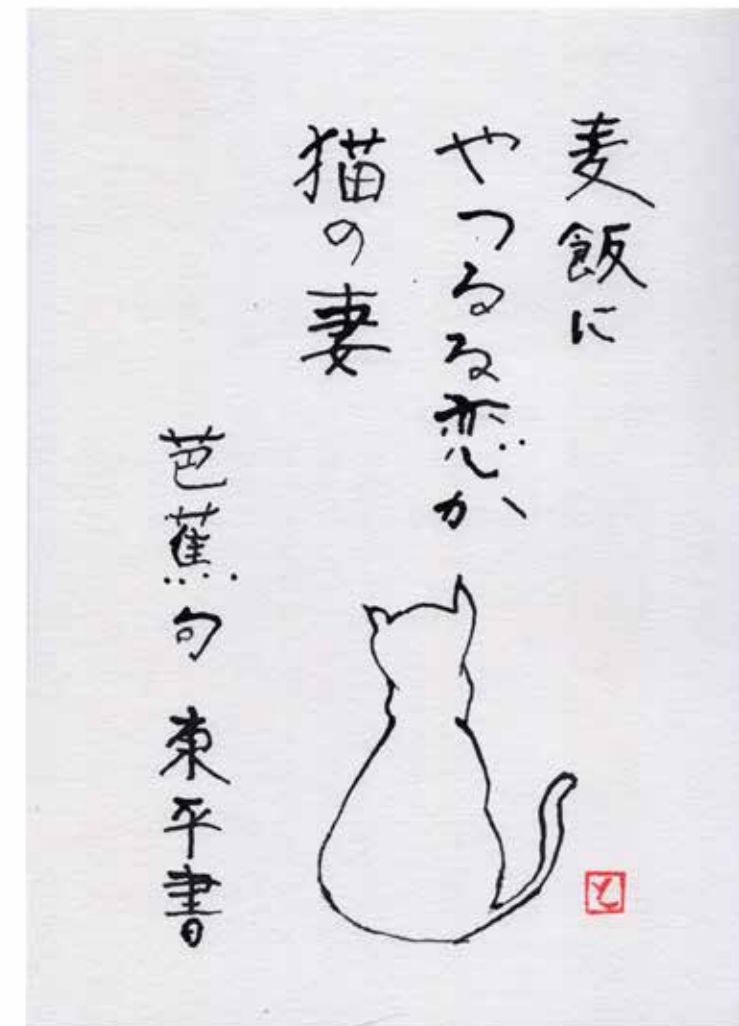 麦飯に
やつるる恋か
猫の妻
芭蕉句 東平書
と